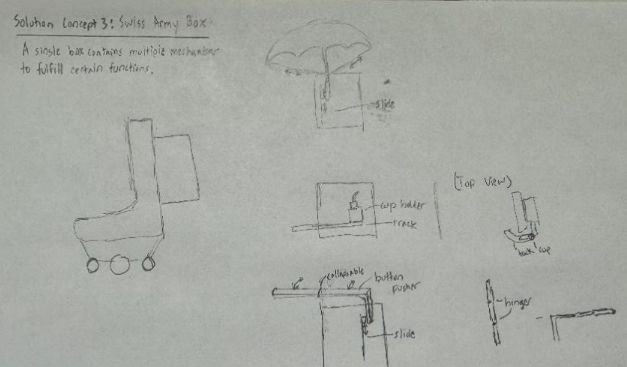 Solution Concept 3: Swiss Army Box
A single box contains multiple mechanisms
to fulfill certain functions.
slide
cup holder
track
(Top View)
cup
collapsable
button
pusher
hinges
slide